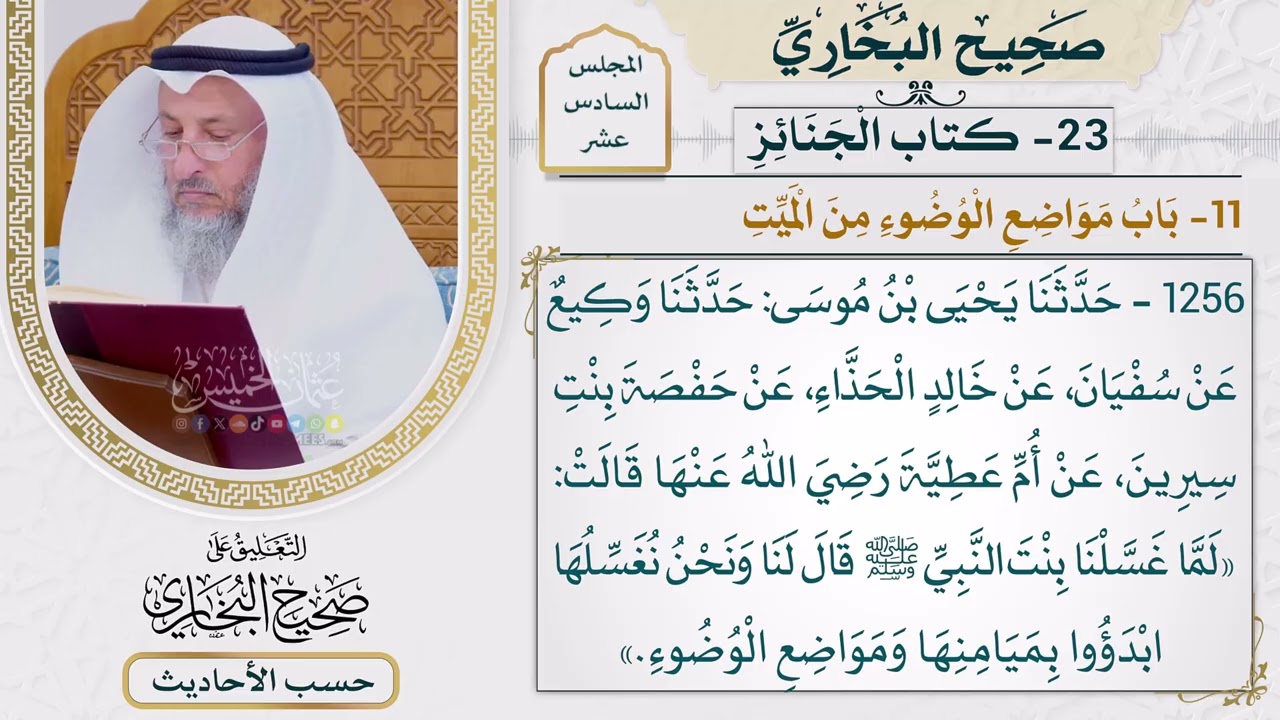 صَحِيح البُخَارِيِّ
المجلس
السادس
عشر
23- كتاب الْجَنَائِزِ
11- بَابُ مَوَاضِعِ الْوُضُوءِ مِنَ الْمَيِّتِ
1256 - حَدَّثَنَا يَحْيَى بْنُ مُوسَى: حَدَّثَنَا وَكِيعٌ
عَنْ سُفْيَانَ، عَنْ خَالِدٍ الْحَذَّاءِ، عَنْ حَفْصَةَ بِنْتِ
سِيرِينَ، عَنْ أُمِّ عَطِيَّةَ رَضِيَ اللهُ عَنْهَا قَالَتْ:
«لَمَّا غَسَّلْنَا بِنْتَ النَّبِيِّ ﷺ قَالَ لَنَا وَنَحْنُ نُغَسِّلُهَا
ابْدَؤُوا بِمَيَامِنِهَا وَمَوَاضِعِ الْوُضُوءِ.»
عثمان الخميس
التَّعْلِيقُ عَلَى
صَحِيحِ البُخَارِي
حسب الأحاديث